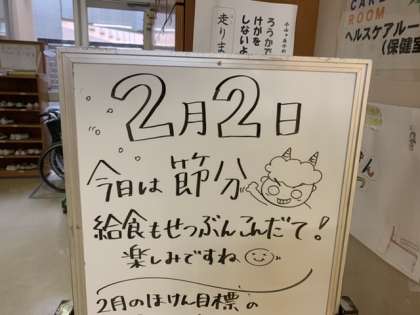 2月2日
今日は節分
給食もせつぶんこんだて!
楽しみですね
2月のほけん目標の
ろうかで
けがを
しないよ
走りま
ROOM
ヘルスケアルー
(保健室